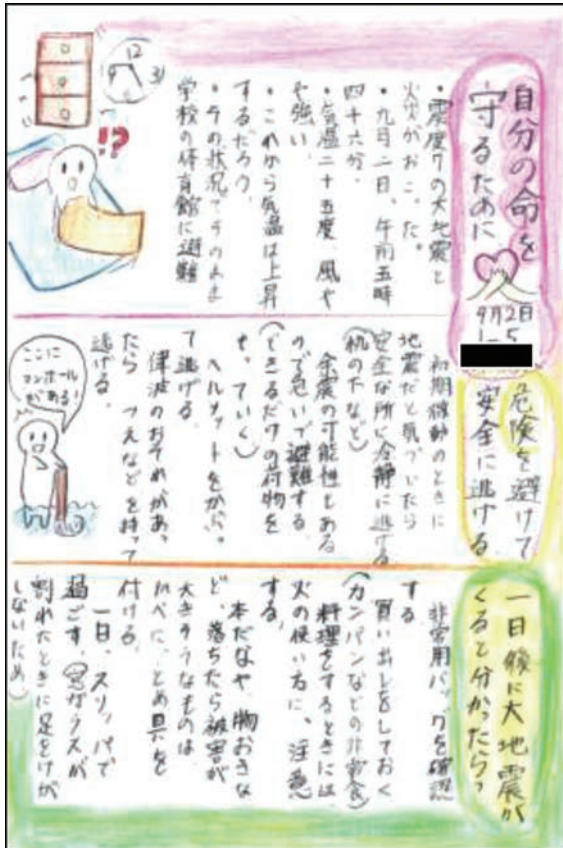 自分の命を
守るために
9月2日
1-5
・震度7の大地震と
火災がおこった。
・九月二日、午前五時
四十六分。
・気温二十五度、風や
や強い。
・これから気温は上昇
するだろう。
・その状況でそのまま
学校の体育館に避難
12
3
9
!?
危険を避けて
安全に逃げる
初期微動のときに
地震だと気づいたら
安全な所に冷静に逃げる
(机の下など)
余震の可能性もある
ので急いで避難する
(できるだけの荷物を
もっていく)
ヘルメットをかぶっ
て逃げる
津波のおそれがあっ
たら つえなどを持って
逃げる。
ここに
マンホール
がある!
一日後に大地震が
くると分かったら?
非常用バッグを確認
する
買い出しをしておく
(カンパンなどの非常食)
料理をするときには
火の使い方に、注意
する。
本だなや、物おきな
ど、落ちたら被害が
大きそうなものは
かべに、とめ具を
付ける。
一日、スリッパで
過ごす。(窓ガラスが
割れたときに足をけが
しないため)